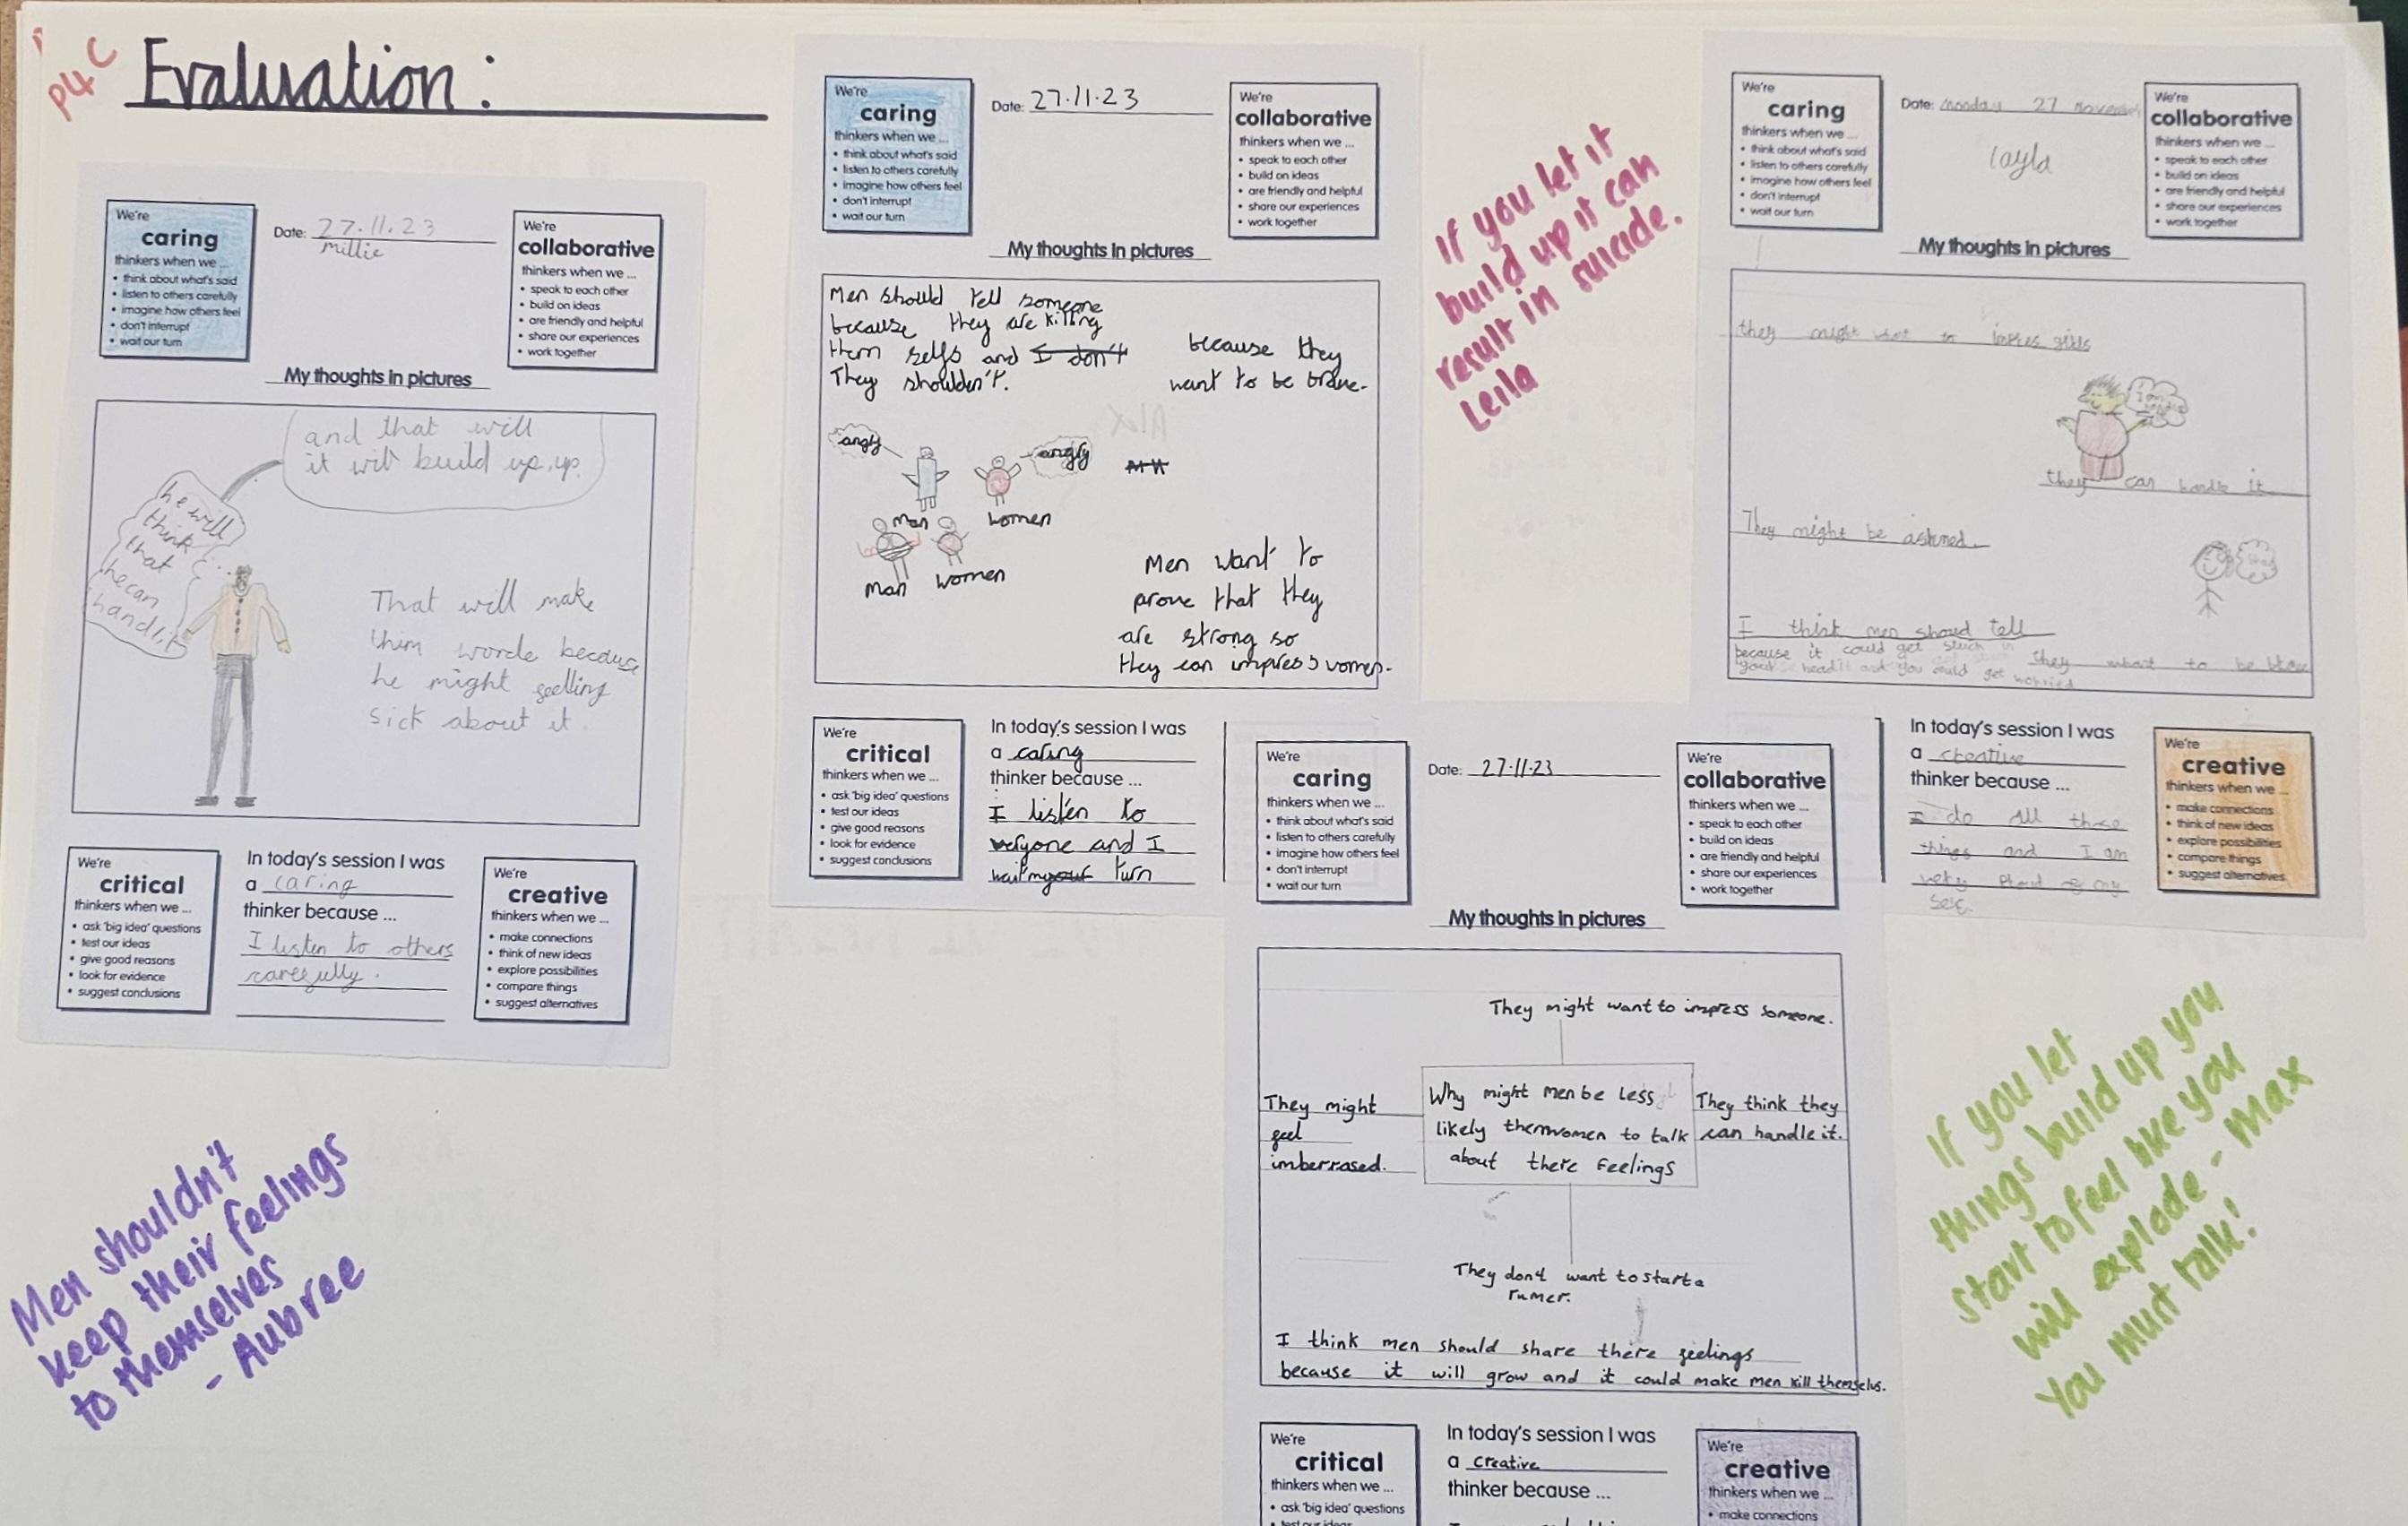 P4C
Evaluation:
We're
caring
thinkers when we ...
• think about what's said
• listen to others carefully
• imagine how others feel
• don't interrupt
• wait our turn
Date: 27.11.23
Millie
We're
collaborative
thinkers when we ...
• speak to each other
• build on ideas
• are friendly and helpful
• share our experiences
• work together
My thoughts in pictures
and that will
it will build up, up.
he will
think
that
he can
handl it
That will make
him worde because
he might geelling
sick about it.
We're
critical
thinkers when we ...
• ask 'big idea' questions
• test our ideas
• give good reasons
• look for evidence
• suggest conclusions
In today's session I was
a caring
thinker because ...
I listen to others
caregully.
We're
creative
thinkers when we ...
• make connections
• think of new ideas
• explore possibilities
• compare things
• suggest alternatives
Men shouldn't
keep their feelings
to themselves
- Aubree
We're
caring
thinkers when we ...
• think about what's said
• listen to others carefully
• imagine how others feel
• don't interrupt
• wait our turn
Date: 27.11.23
We're
collaborative
thinkers when we ...
• speak to each other
• build on ideas
• are friendly and helpful
• share our experiences
• work together
My thoughts in pictures
Men should tell someone
because they are killing
them selfs and I don't
They shouldn't.
because they
want to be brave.
angly
angly
man
women
man
women
Men want to
prove that they
are strong so
they can impress women.
We're
critical
thinkers when we ...
• ask 'big idea' questions
• test our ideas
• give good reasons
• look for evidence
• suggest conclusions
In today's session I was
a caring
thinker because ...
I listen to
veryone and I
wait my turn
If you let it
build up it can
result in suicade.
Leila
We're
caring
thinkers when we ...
• think about what's said
• listen to others carefully
• imagine how others feel
• don't interrupt
• wait our turn
Date: Monday 27 November
layla
We're
collaborative
thinkers when we ...
• speak to each other
• build on ideas
• are friendly and helpful
• share our experiences
• work together
My thoughts in pictures
they might what to impres girls
they can handle it
They might be ashmed.
I think men should tell
because it could get stuck in
your head and you could get worried
they want to be brave
In today's session I was
a creative
thinker because ...
I do all those
things and I am
very proud of my
selg.
We're
creative
thinkers when we ...
• make connections
• think of new ideas
• explore possibilities
• compare things
• suggest alternatives
We're
caring
thinkers when we ...
• think about what's said
• listen to others carefully
• imagine how others feel
• don't interrupt
• wait our turn
Date: 27.11.23
We're
collaborative
thinkers when we ...
• speak to each other
• build on ideas
• are friendly and helpful
• share our experiences
• work together
My thoughts in pictures
They might want to impress someone.
They might
geel
imberrased.
Why might men be less
likely then women to talk
about there Feelings
They think they
can handle it.
They don't want to start a
rumer.
I think men should share there geelings
because it will grow and it could make men kill themselvs.
We're
critical
thinkers when we ...
• ask 'big idea' questions
• test our ideas
In today's session I was
a creative
thinker because ...
We're
creative
thinkers when we ...
• make connections
If you let
things build up you
start to feel like you
will explode - Max
You must talk!